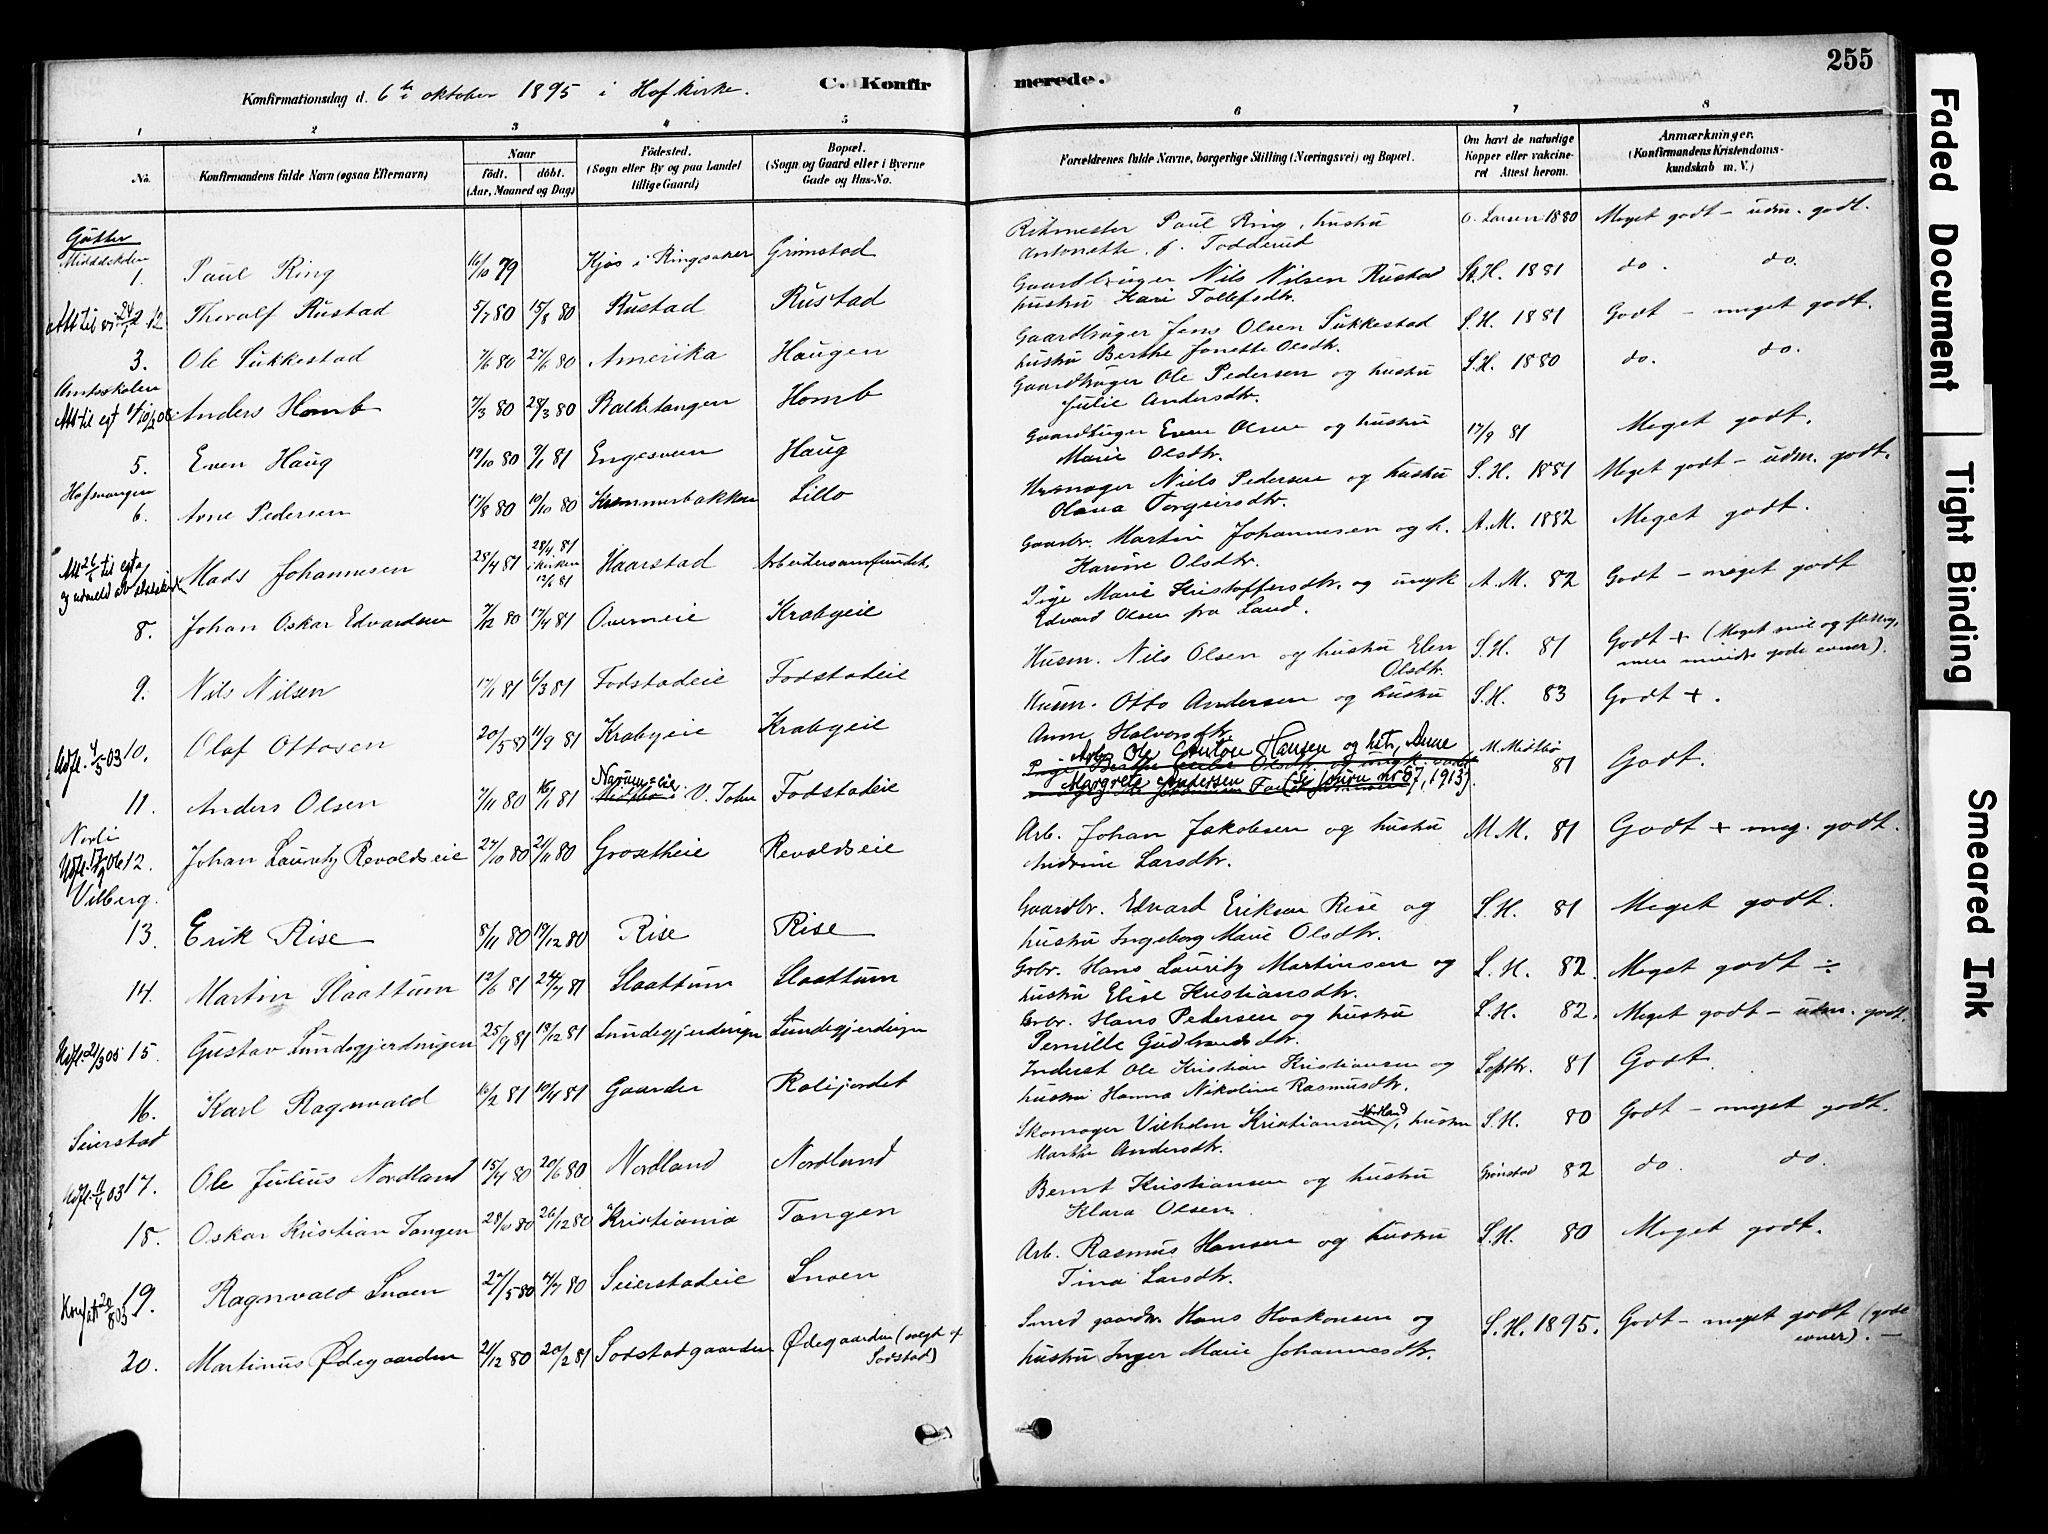 255
Konfirmationsdag d. 6te oktober 1895 i Hof kirke. C. Konfirmerede.
1 2 3 4 5 6 7 8
No. Konfirmandens fulde Navn (ogsaa Efternavn) Naar født. døbt. (Aar, Maaned og Dag) Fødested. (Sogn eller By og paa Landet tillige Gaard) Bopæl. (Sogn og Gaard eller i Byerne Gade og Hus-No. Forældrenes fulde Navne, borgerlige Stilling (Næringsvei) og Bopæl. Om havt de naturlige Kopper eller vakcineret Attest herom. Anmærkninger. (Konfirmandens Kristendomskundskab m. V.)
Gutter
Middelskolen
1. Paul Ring 16/10 79 Kjøs i Ringsaker Grimstad Ritmester Paul Ring, hustru Antonette f. Todderud 1880 Meget godt - udm. godt.
2 Thoralf Rustad 5/7 80 15/8 80 Rustad Rustad Gaardbruger Nils Nilsen Rustad hustru Kari Tollefsdtr. St. H. 1881 do. do.
3. Ole Sukkestad 7/6 80 27/6 80 Amerika Haugen Gaardbruger Jens Olsen Sukkestad hustru Berthe Jonette Olsdtr. S.H. 1881 Godt - meget godt.
Amtsskolen
Anders Homb 7/3 80 28/3 80 Balketangen Homb Gaardbruger Ole Pedersen og hustru Julie Andersdtr. S.H. 1880 do. do.
5. Even Haug 19/10 80 9/1 81 Engesveen Haug Gaardbruger Even Olsen og hustru Marie Olsdtr. 17/9 81 Meget godt.
Hofsvangen
6. Arne Pedersen 17/8 80 10/10 80 Kremmerbakken Lillo Urmager Niels Pedersen og hustru Olava Torgeirsdtr. S.H. 1881 Meget godt - udm. godt.
Mads Johannesen 25/4 81 28/4 81 i kirken 12/6 81 Haarstad Arbeidersamfundet. Gaardbr. Martin Johannesen og h. Karine Olsdtr. A.M. 1882 Meget godt.
8. Johan Oskar Edvardsen 7/12 80 17/4 81 Overneie Krabyeie Pige Marie Kristoffersdtr. og ungk. Edvard Olsen fra Land. A.M. 82 Godt - meget godt
9. Nils Nilsen 17/1 81 6/3 81 Fodstadeie Fodstadeie Husm. Nils Olsen og hustru Elen Olsdtr. S.H. 81 Godt + (Meget snil og flittig, men mindre gode evner).
Udfl. 4/5 03 10. Olaf Ottosen 20/5 81 11/9 81 Krabyeie Krabyeie Husm. Otto Andersen og hustru Anne Halvorsdtr. S.H. 83 Godt +.
11. Anders Olsen 7/11 80 16/1 81 V. Toten Fodstadeie Arb. Ole Anton Hansen og htr. Anne Margrete Andersen (se journ nr 87, 1913). 81 Godt.
Norli
Udfl. 06 12. Johan Lauritz Revoldseie 27/10 80 21/11 80 Grosetheie Revoldseie Arb. Johan Jakobsen og hustru Andrine Larsdtr. M.M. 81 Godt + meg. godt.
Vilberg.
13. Erik Rise 8/11 80 19/12 80 Rise Rise Gaardbr. Edvard Eriksen Rise og hustru Ingeborg Marie Olsdtr. S.H. 81 Meget godt.
14. Martin Slaattum 12/6 81 24/7 81 Slaattum Slaattum Grbr. Hans Lauritz Martinsen og hustru Elise Kristiansdtr. S.H. 82. Meget godt ÷
Udfl. 21/3 05 15. Gustav Lundsgjerdingen 25/9 81 18/12 81 Lundsgjerdingn Lundsgjerdingn Grbr. Hans Pedersen og hustru Pernille Gudbrandsdtr. S.H. 82. Meget godt - udm. godt.
16. Karl Ragnvald 16/2 81 10/4 81 Gaarder Roligjordet Inderst Ole Kristian Kristiansen og hustru Hanna Nikoline Rasmusdtr. Septbr. 81 Godt.
Seierstad
Udfl. 11/4 03 17. Ole Julius Nordland 15/4 80 20/6 80 Nordland Nordland Skomager Vilhelm Kristiansen Nordland, hustru Marthe Andersdtr. S.H. 80 Godt - meget godt.
18. Oskar Kristian Tangen 28/10 80 26/12 80 Kristiania Tangen Bernt Kristiansen og hustru Klara Olsen. Grønstad 82 do. do.
19. Ragnvald Snoen 27/5 80 4/7 80 Seierstadeie Snoen Arb. Rasmus Hansen og hustru Tina Larsdtr. S.H. 80 Meget godt.
20. Martinus Ødegaarden 21/12 80 20/2 81 Sodstadgaarden Ødegaarden (solgt af Sodstad) Smed gaardbr. Hans Haakonsen og hustru Inger Marie Johannesdtr. S.H. 1895. Godt - meget godt (gode evner). -
Faded Document
Tight Binding
Smeared Ink